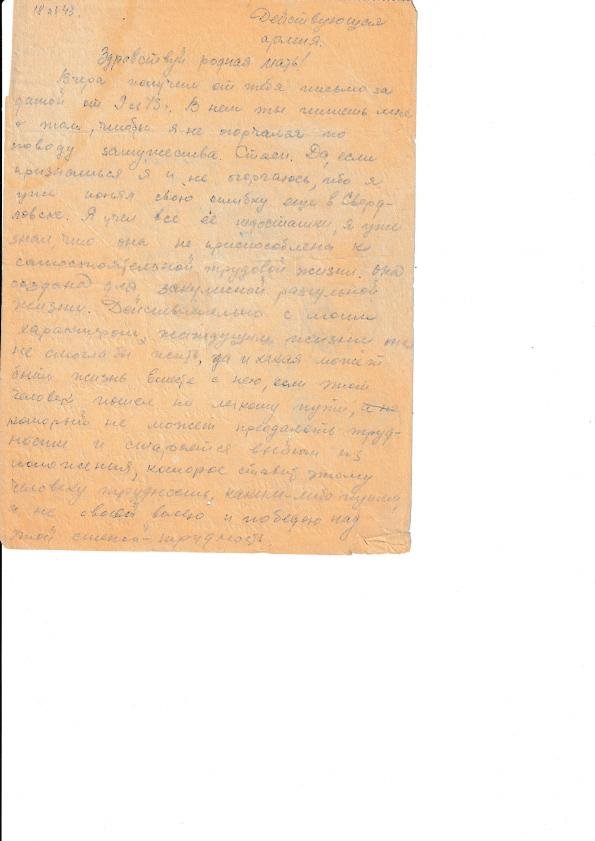 18 43.
Действующая
армия.
Здравствуй родная мать!
Вчера получил от тебя письмо за
датой от 43г. В нем ты пишешь мне
о том, чтобы я не огорчался по
поводу замужества. Стаси. Да, если
признаться я и не огорчаюсь, ибо я
уже понял свою ошибку еще в Сверд-
ловске. Я учел все ее недостатки, я уже
знал что она не приспособлена к
самостоятельной трудовой жизни. Она
создана для закулисной разгульной
жизни. Действительно с моим
характером, жаждущим жизни она
не смогла бы жить, да и какая может
быть жизнь вместе с нею, если этот
человек пошел по легкому пути,
который не может преодолеть труд-
ности и старается выйти из
положения, которое ставит этому
человеку трудность, каким-либо путем,
а не своей волею и победою над
этой стеной-трудность.